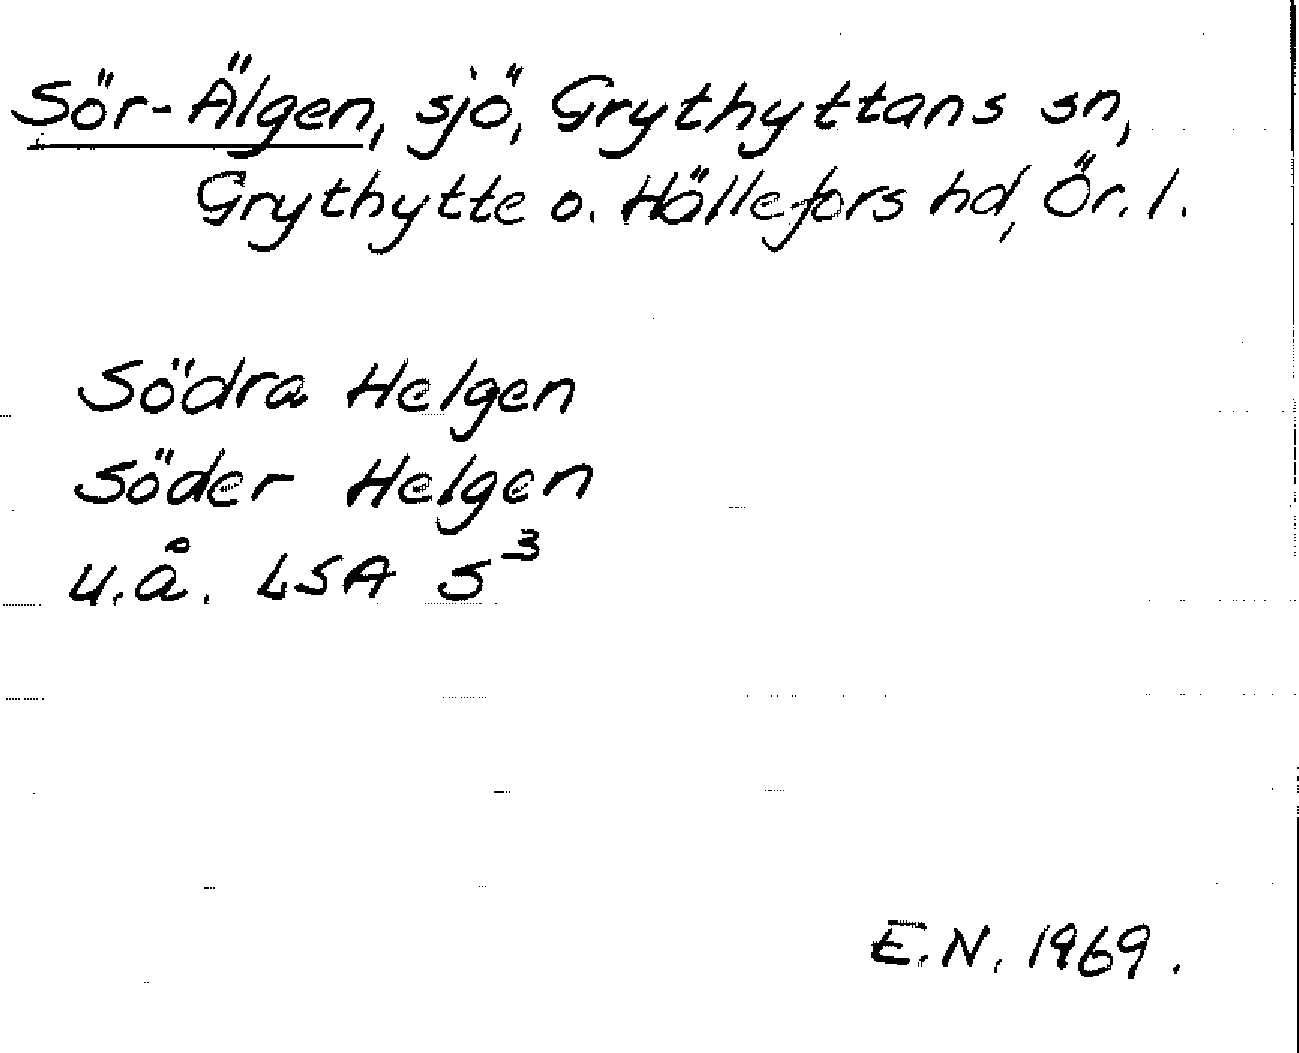 Sör-Älgen, sjö, Grythyttans sn,
Grythytte o. Hällefors hd, Ör. l.
Södra Helgen
Söder Helgen
u.å. LSA S³
E.N. 1969.